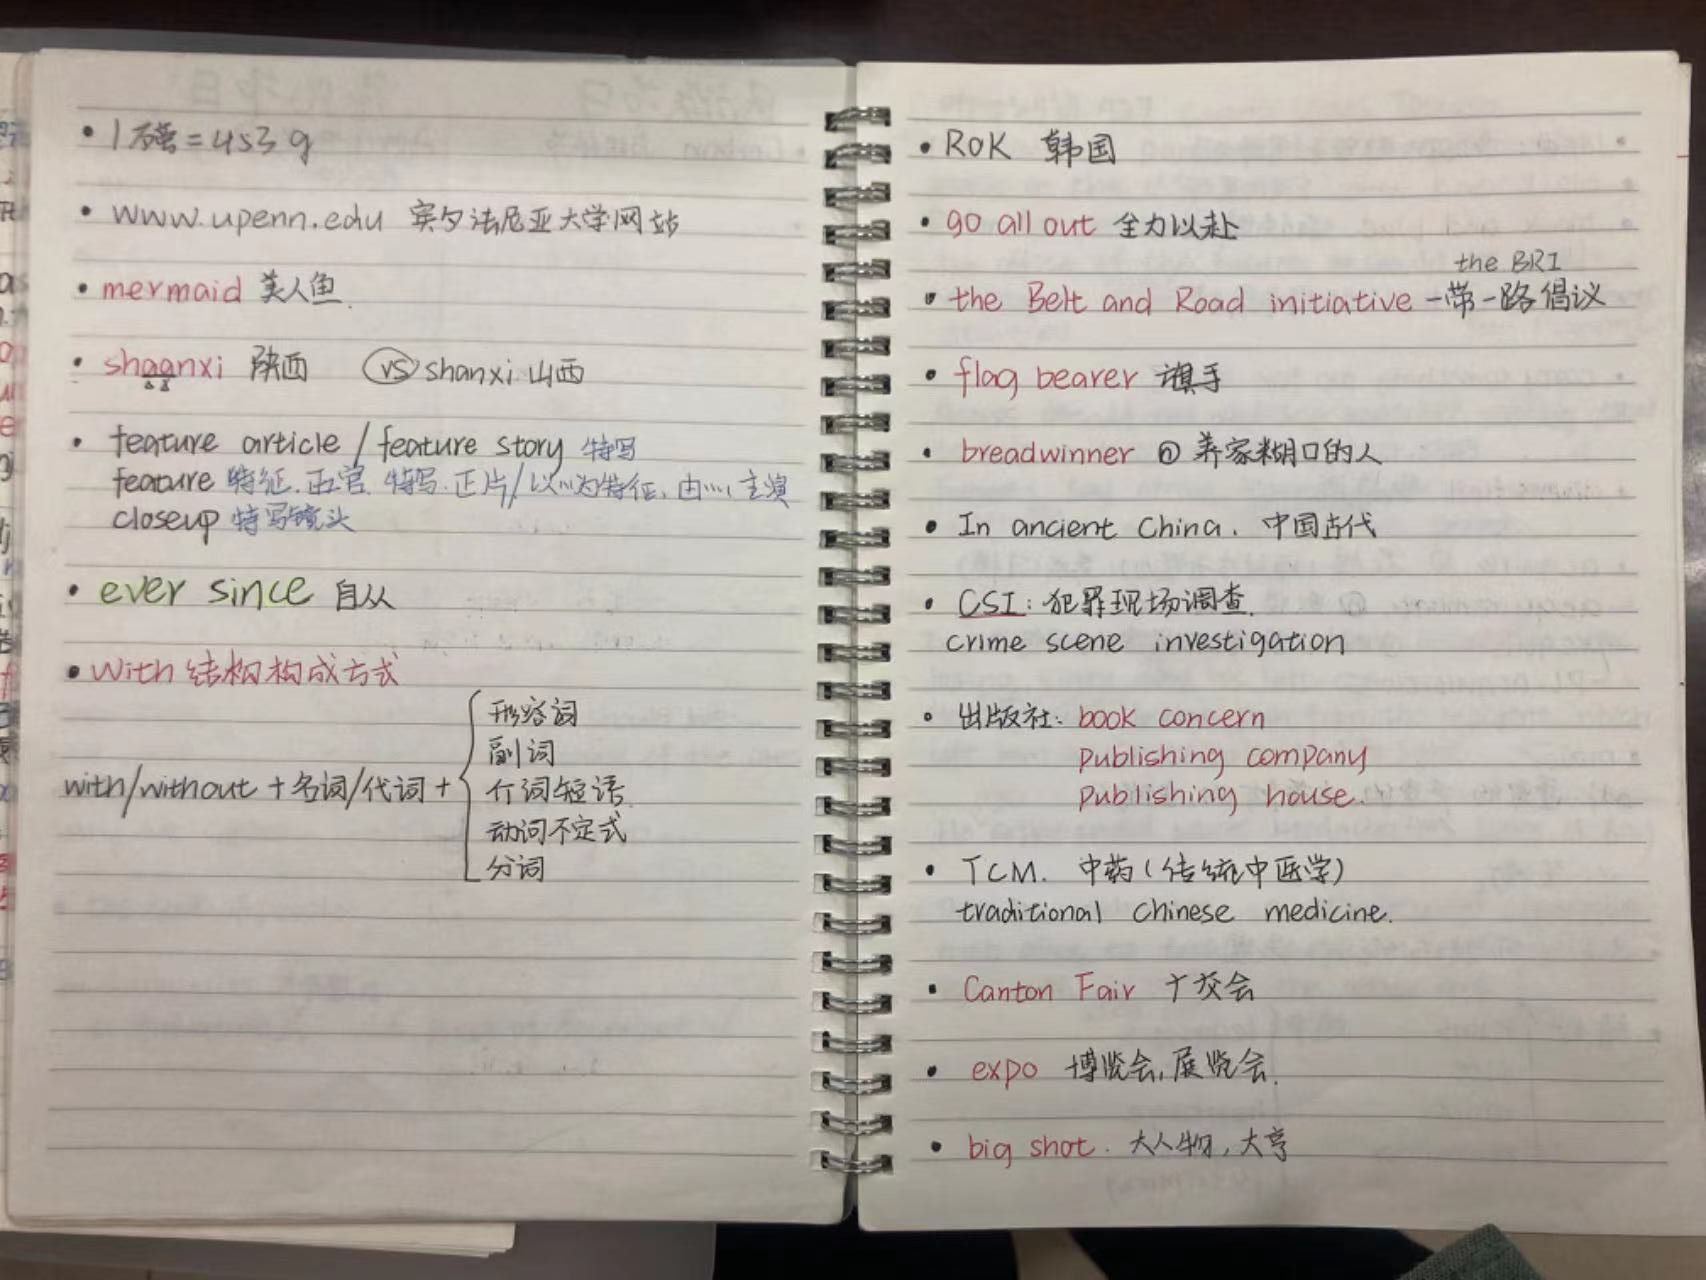 • 1磅=453g
• www.upenn.edu 宾夕法尼亚大学网站
• mermaid 美人鱼.
• shaanxi 陕西 VS shanxi 山西
• feature article / feature story 特写
feature 特征.五官.特写.正片/以……为特征,由……主演
closeup 特写镜头
• ever since 自从
• With结构构成方式
形容词
副词
with/without+名词/代词+ 介词短语.
动词不定式
分词
• ROK 韩国
• go all out 全力以赴
the BRI
• the Belt and Road initiative 一带一路倡议
• flag bearer 旗手
• breadwinner ⓝ 养家糊口的人
• In ancient China. 中国古代
• CSI: 犯罪现场调查.
crime scene investigation
• 出版社: book concern
publishing company
publishing house.
• TCM. 中药(传统中医学)
traditional Chinese medicine.
• Canton Fair 广交会
• expo 博览会,展览会.
• big shot. 大人物,大亨